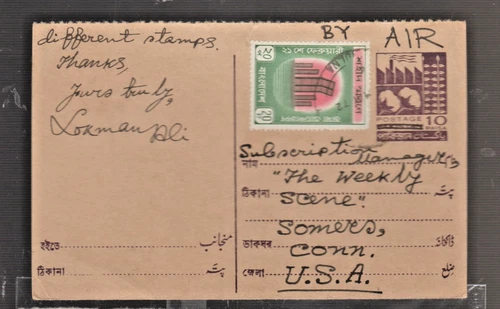 different stamps.
Thanks,
Yours truly,
Lokman Ali
হইতে منجانب
ঠিকানা پتہ
BY AIR
২১শে ফেব্রুয়ারী
POSTAGE 10
Subscription Manager,
নাম
"The Weekly
ঠিকানা پتہ
Scene".
Somers,
ডাকঘর
Conn.
জেলা ضلع
U.S.A.